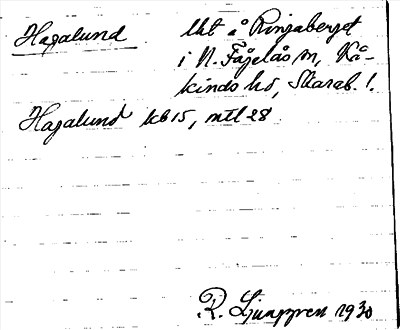 Hagalund Utt å Ringaberget
i N. Fågelås sn, Kå-
kinds hd, Skarab. l.
Hagalund kb 15, mtl 28
R. Ljunggren 1930